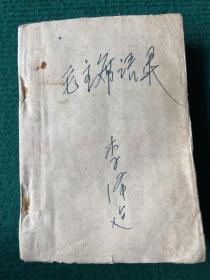 毛主席语录
李泽